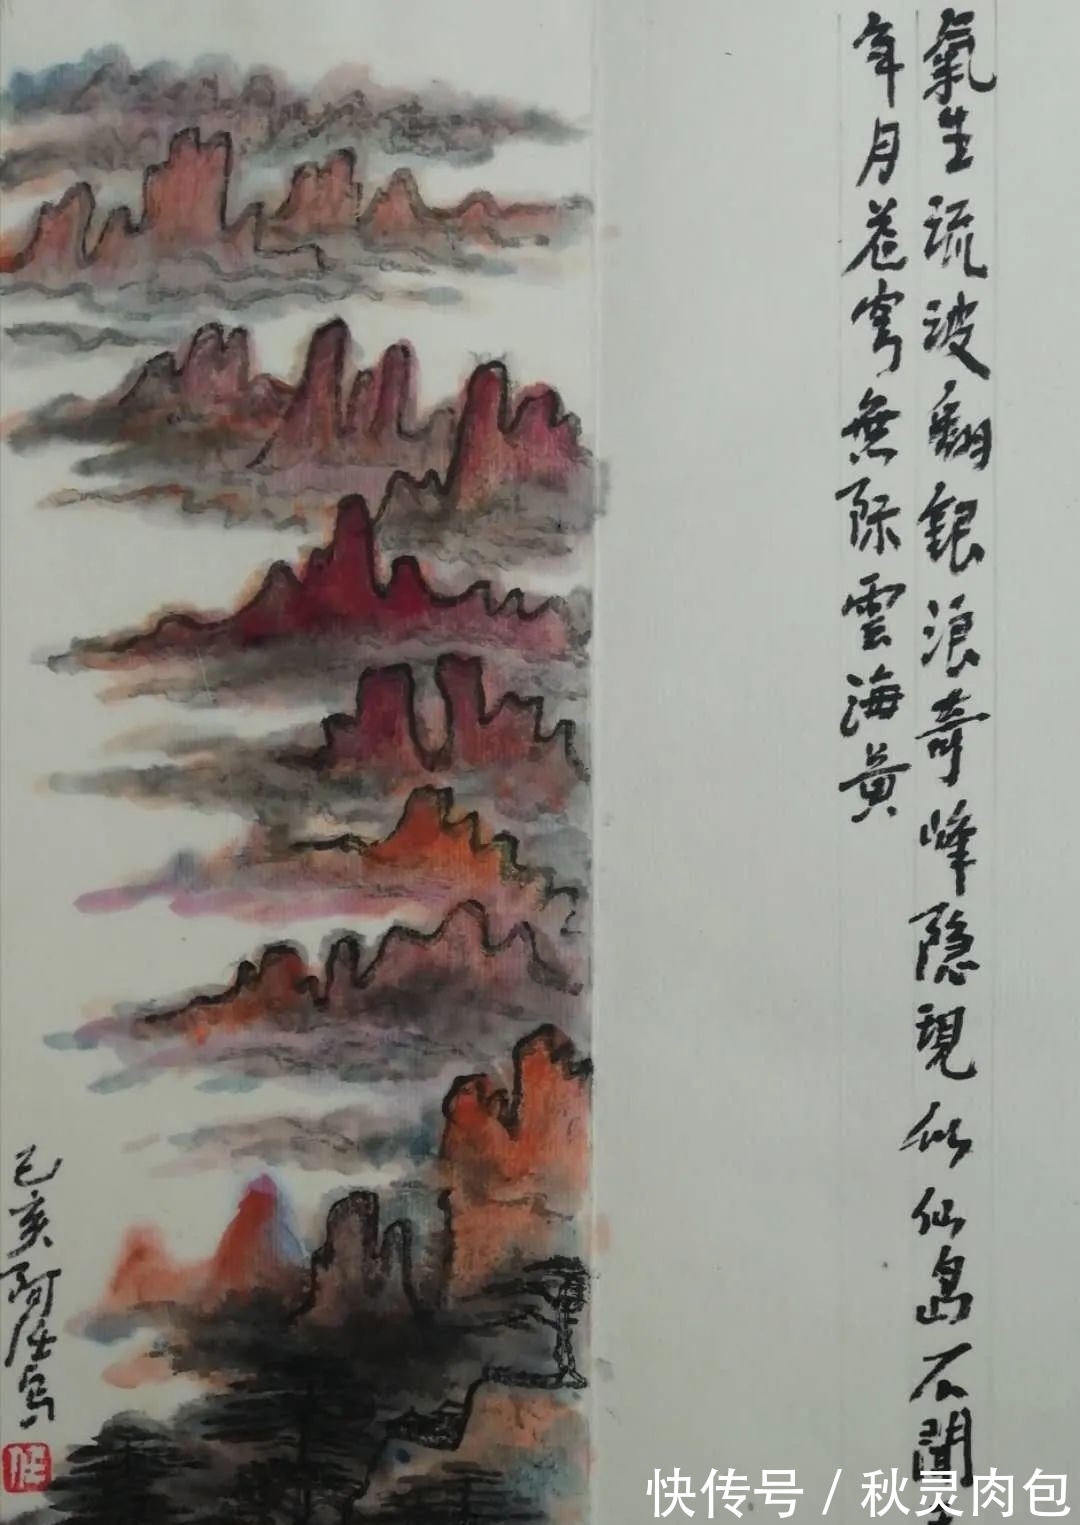 氣生流波翻銀浪奇峰隐現似仙島不聞
年月苍穹無际雲海黄
己亥阿任写
任
快传号 / 秋灵肉包